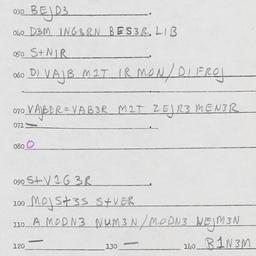 030 BEJD3
040 D3M ING3RN BES3R. LIB
050 S+NIR
060 DI VAJB MIT IR MON/DI FROJ
070 VAJBER=VAB3R MIT ZEJR3 MEN3R
071 —
080 O
090 S+VIG3R
100 MOJS+3S S+VER
110 A MODN3 NUM3N/MODN3 NEJM3N
120 — 130 — 140 BIN3M